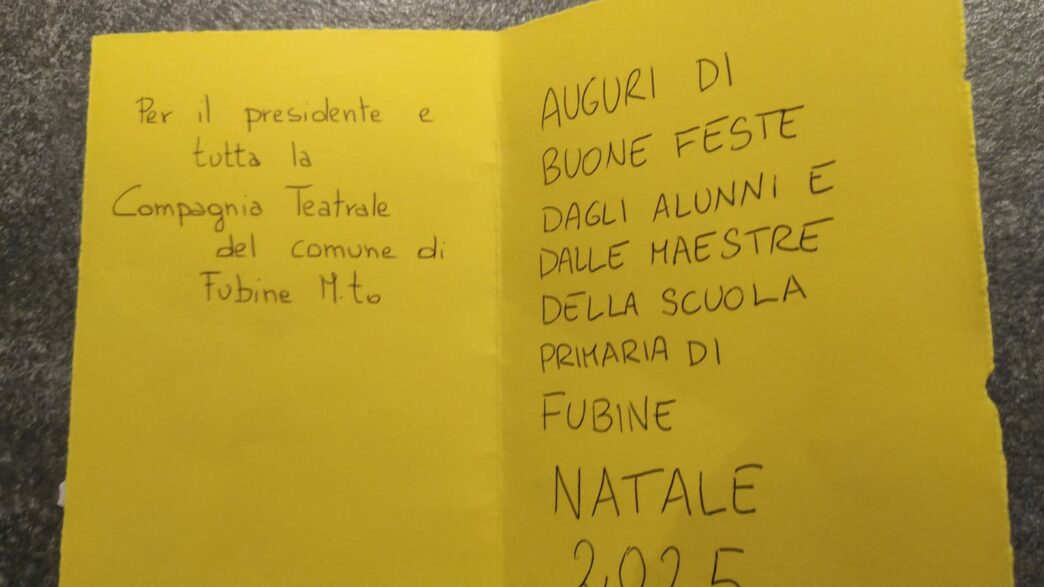 Per il presidente e
tutta la
Compagnia Teatrale
del comune di
Fubine M.to
AUGURI DI
BUONE FESTE
DAGLI ALUNNI E
DALLE MAESTRE
DELLA SCUOLA
PRIMARIA DI
FUBINE
NATALE
2025